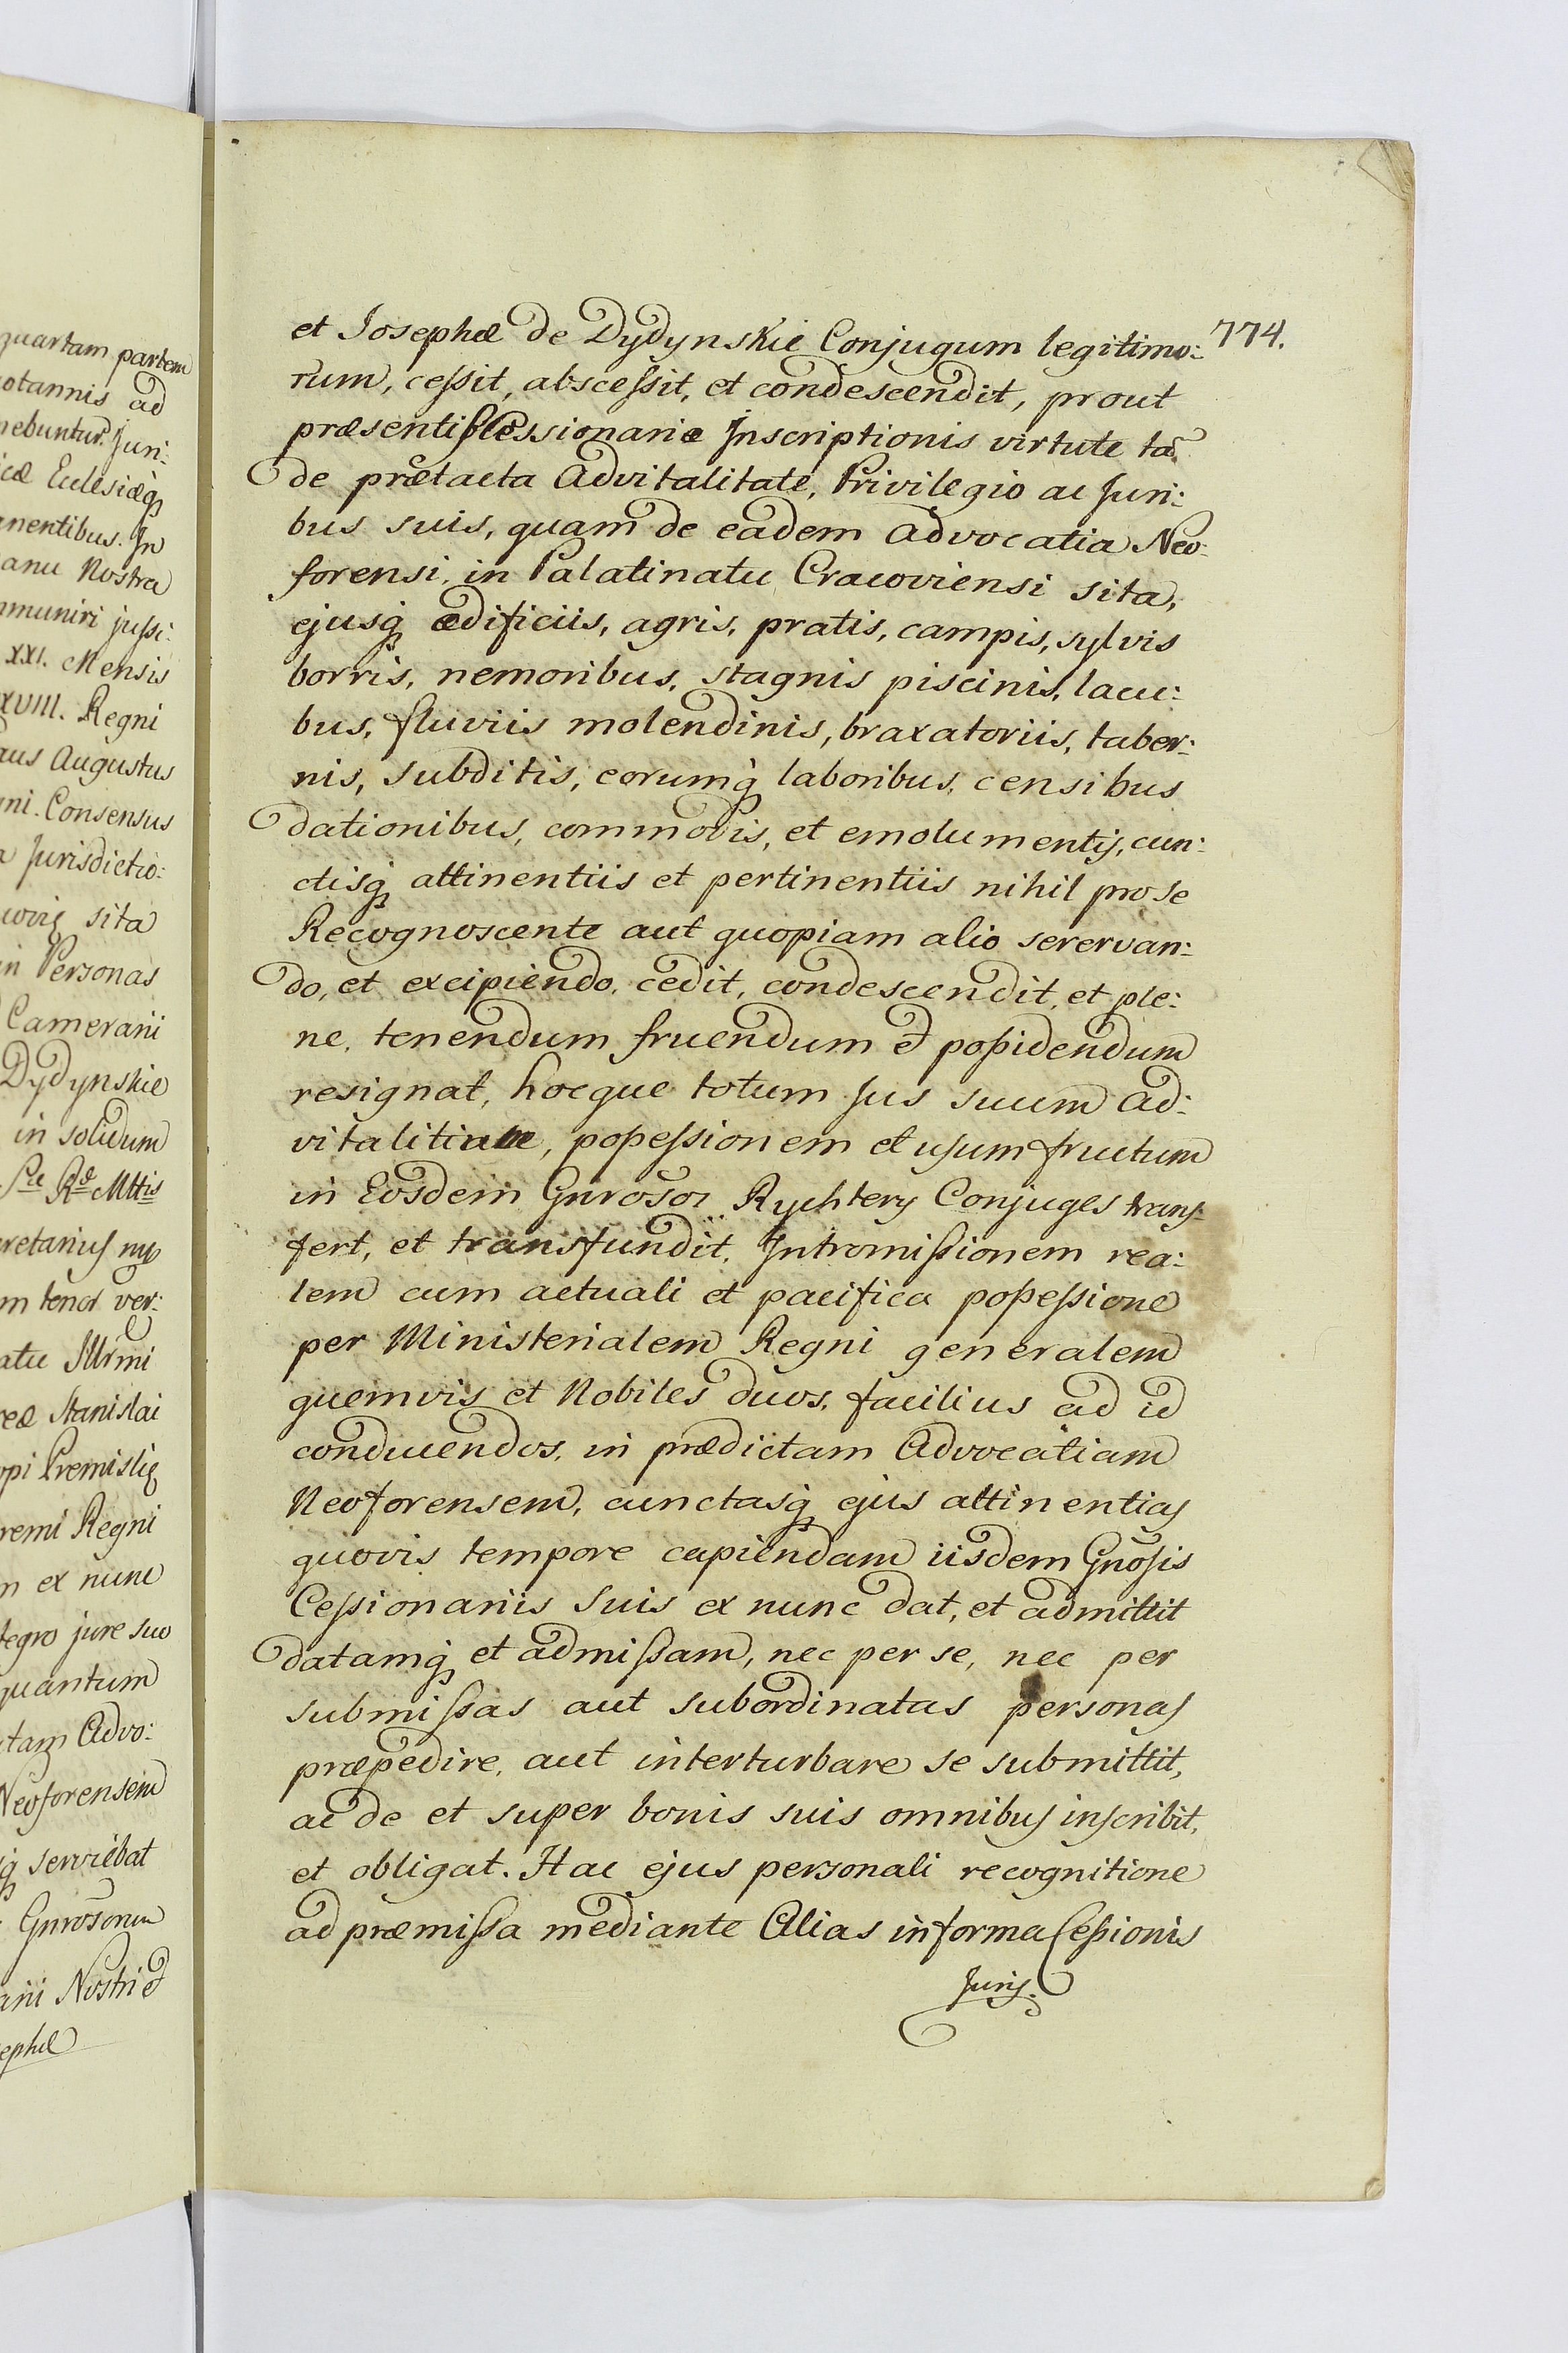 quartam partem
otannis ad
nebuntur. Juri:
cæ Ecclesiæq́
nentibus. In
anu Nostra
mmuniri jussi:
XXI. Mensis
XVIII. Regni
aus Augustus
ni. Consensus
Jurisdictio:
sita
in Personas
Camerarii
Dydynskie
in solidum
Sæ Ræ Mttis
retarius mp
m tenor ver:
atu Illr̃mi
reæ Stanislai
opi Premislię
remi Regni
m ex nunc
tegro jure suo
quantum
tam Advo:
Neoforensem
q́ serviebat
Gnrosorum
arii Nostri et
sephæ
774.
et Josephæ de Dydynskie Conjugum legitimo:
rum, cessit, abscessit, et condescendit, prout
præsentis Cessionariæ Inscriptionis virtute tã
de prætacta Advitalitate, Privilegio ac Juri:
bus suis, quam de eadem Advocatia Neo:
forensi, in Palatinatu Cracoviensi sita,
ejusq́ ædificiis, agris, pratis, campis, sylvis
borris, nemoribus, stagnis piscinis, lacu:
bus, fluviis molendinis, braxatoriis, taber:
nis, subditis, eorumq́ laboribus, censibus
dationibus, commodis, et emolumentis, cun:
ctisq́ attinentiis et pertinentiis nihil pro se
Recognoscente aut quopiam alio serervan:
do, et excipiendo, cedit, condescendit, et ple:
ne, tenendum fruendum et possidendum
resignat, hocque totum Jus suum Ad:
vitalitiale, possessionem et usumfructum
in Eosdem Gnrosos Rychtery Conjuges trans:
fert, et transfundit. Intromissionem rea:
lem cum actuali et pacifica possessione
per Ministerialem Regni generalem
quemvis et Nobiles duos, facilius ad id
conducendos, in prædictam Advocatiam
Neoforensem, cunctasq́ ejus attinentias
quovis tempore capiendam iisdem Gnõsis
Cessionariis Suis ex nunc dat, et admittit
datamq́ et admissam, nec per se, nec per
submissas aut subordinatas personas
præpedire, aut interturbare se submittit,
ac de et super bonis suis omnibus inscribit,
et obligat. Hac ejus personali recognitione
ad præmissa mediante Alias in forma Cessionis
Juris.